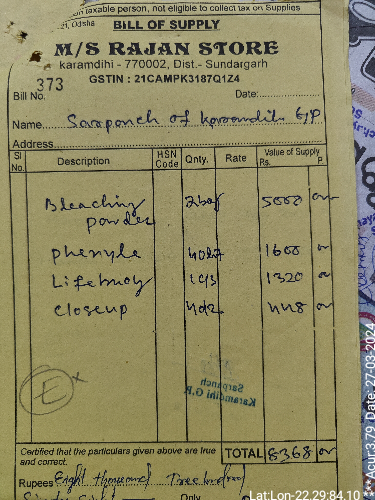 on taxable person, not eligible to collect tax on Supplies
21, Odsha
BILL OF SUPPLY
M/S RAJAN STORE
karamdihi - 770002, Dist.- Sundargarh
GSTIN : 21CAMPK3187Q1Z4
Bill No. 373 Date:
Name Sarpanch of karamdihi G/P
Address
Sl No. Description HSN Code Qnty. Rate Value of Supply Rs. P
Bleaching powder 2bag 5000
phenyle 40 1600
Lifebuoy 1 1320
closeup 4 448
Sarpanch
Karamdihi G.P.
Certified that the particulars given above are true and correct. TOTAL 8368
Rupees Eight thousand Three hundred
Only
Lat:Lon-22.29:84.10
Acur:8.79 Date: 27-03-2024